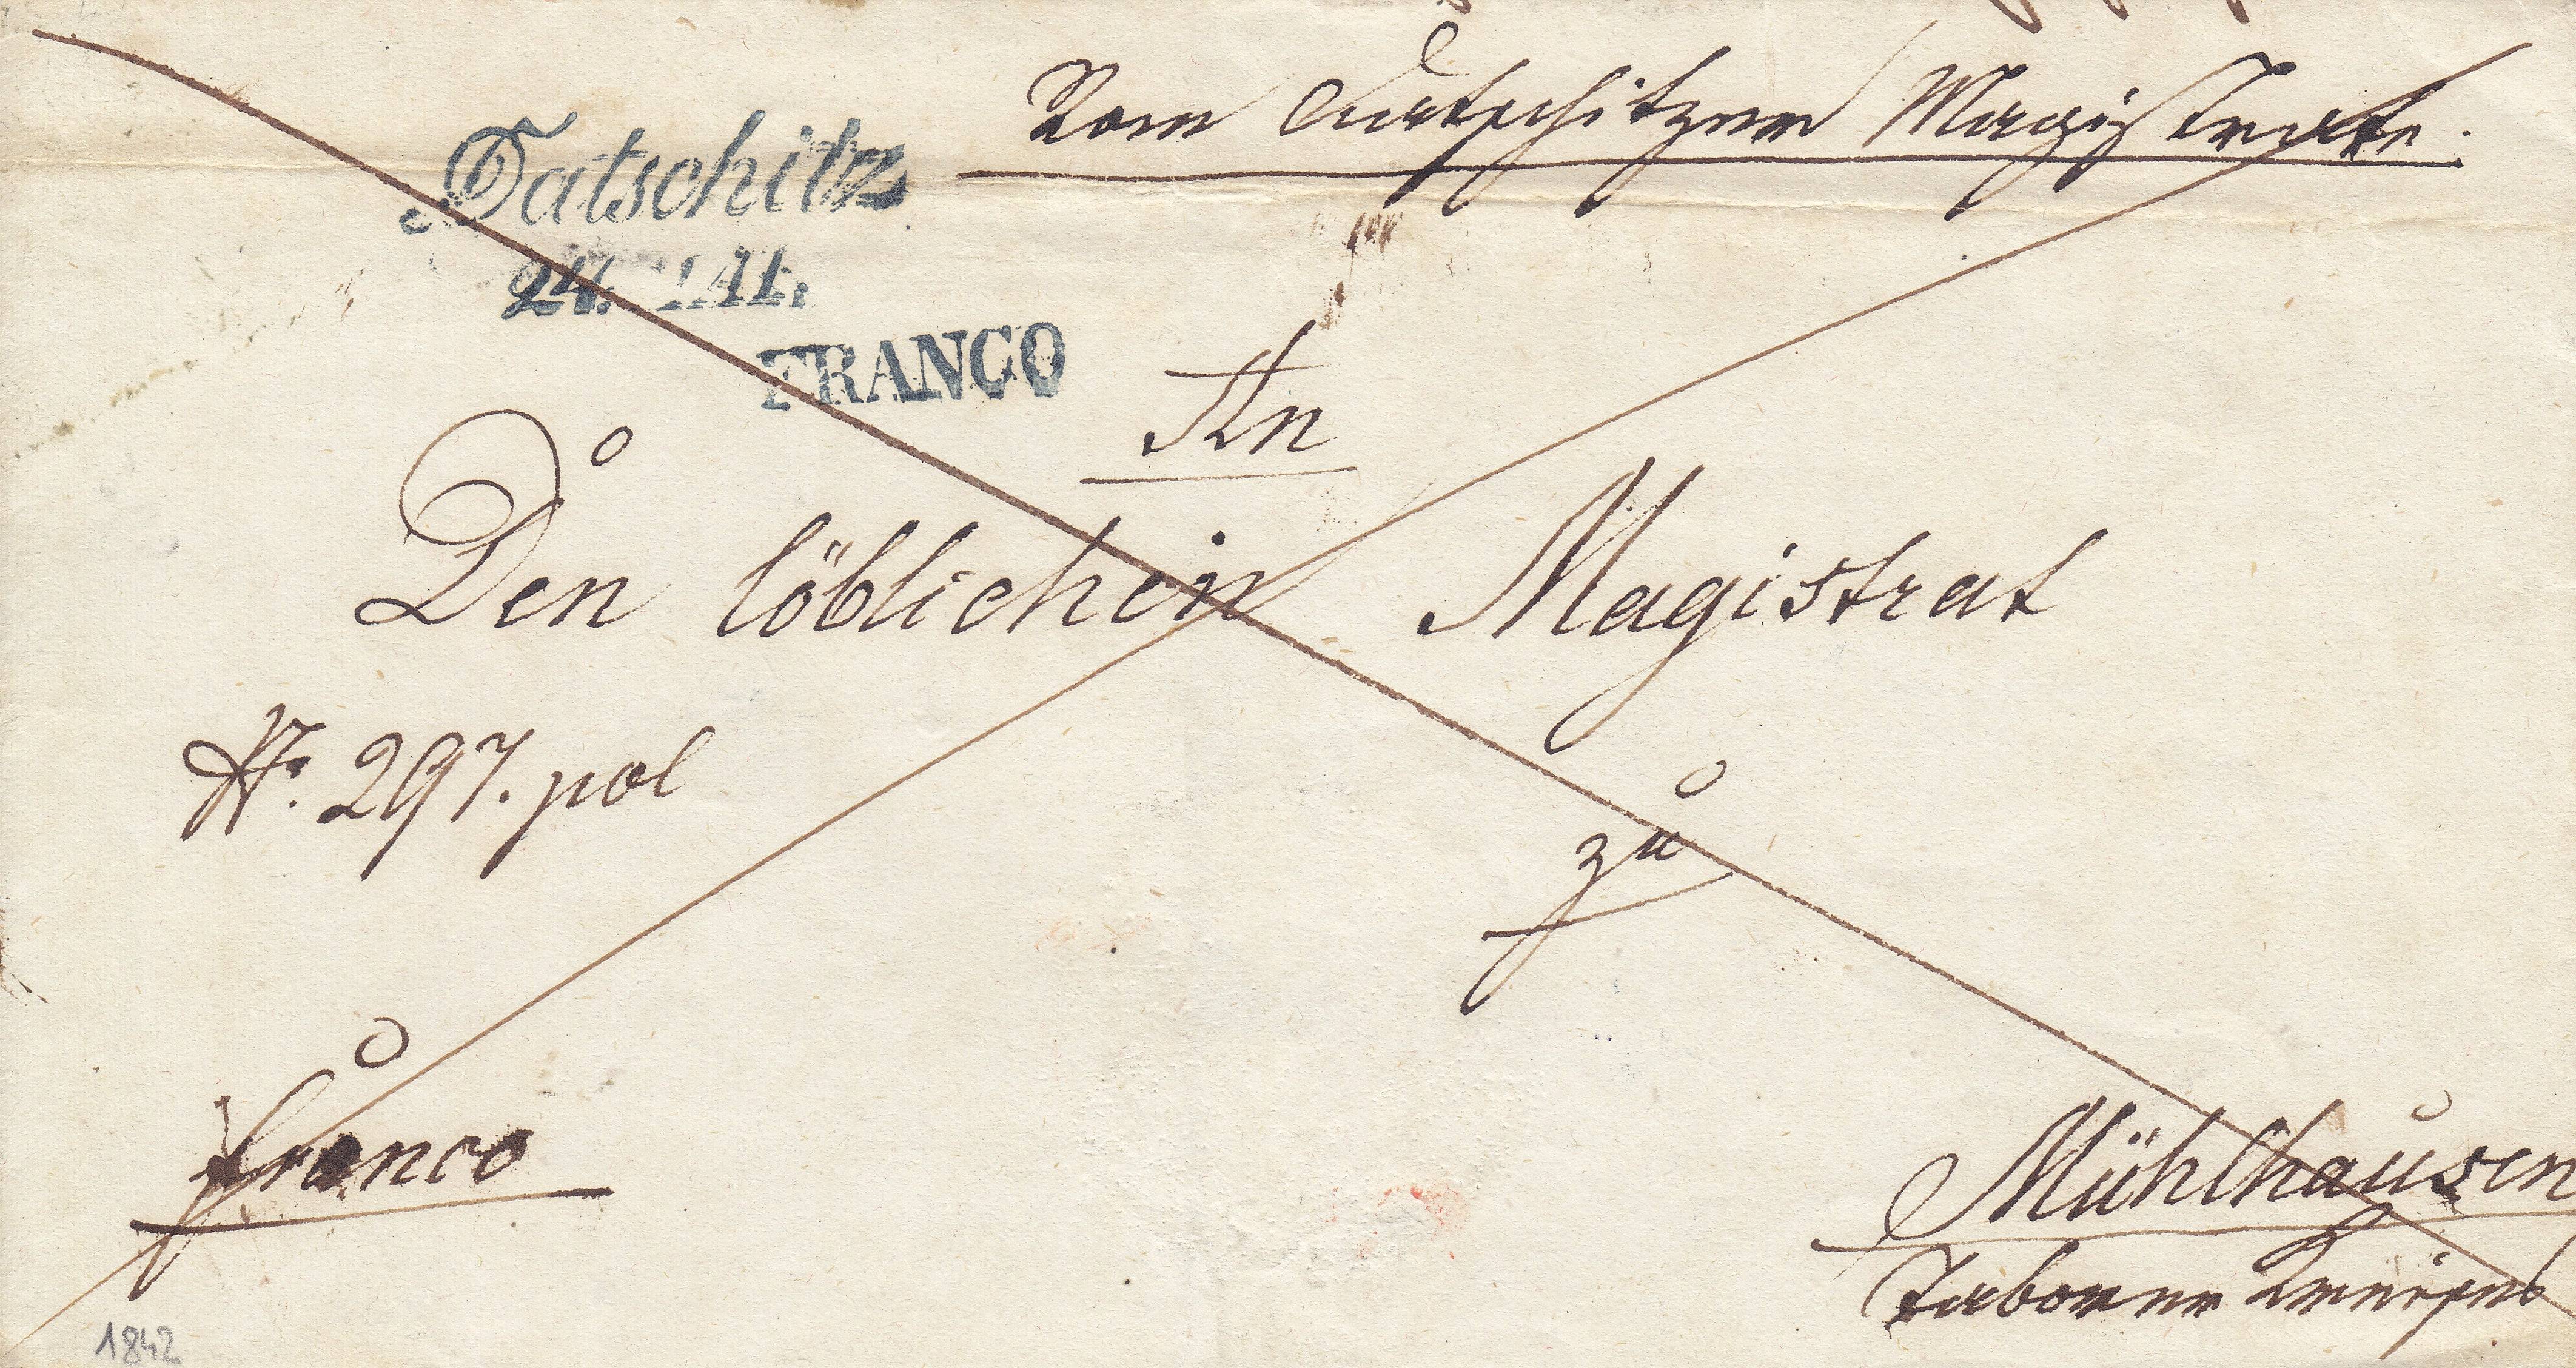 Vom Datschitzer Magistrate.
Datschitz
24. MAI.
FRANCO
An
Den löblichen Magistrat
Nr. 297. pol
zu
franco
Mühlhausen
Taborer Kreises
1842